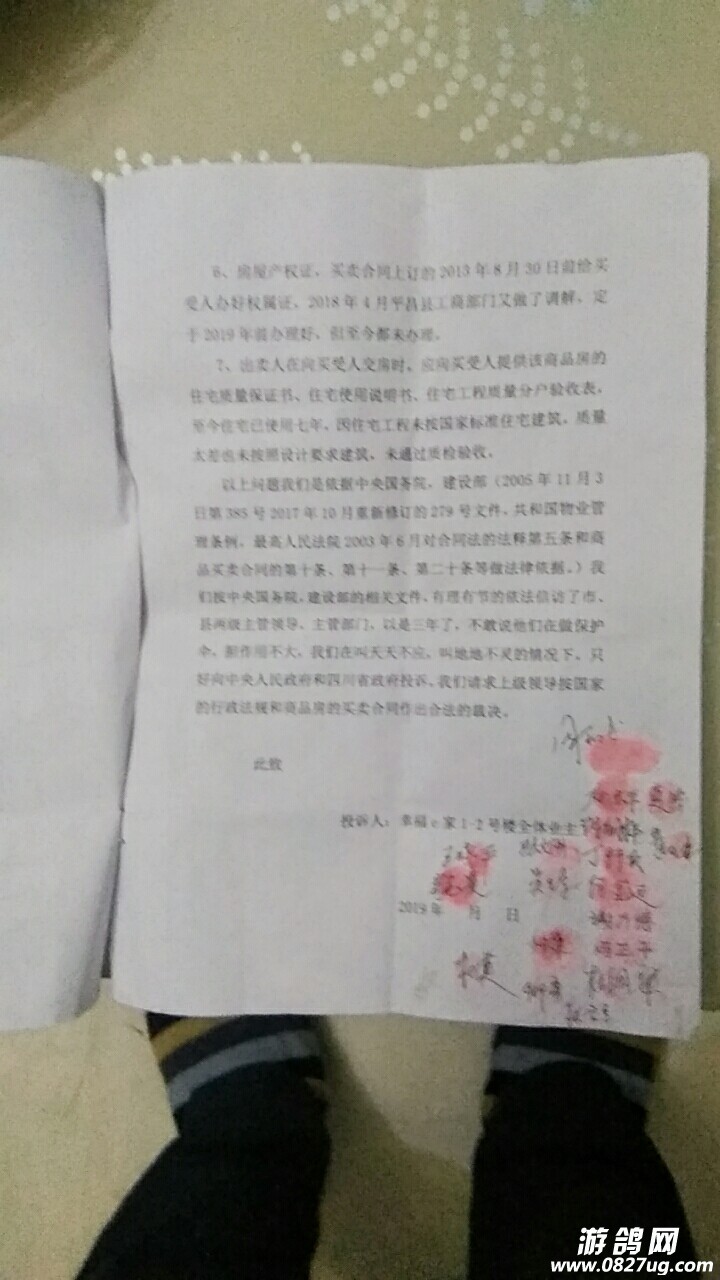 6、房屋产权证，买卖合同上订的2013年8月30日前给买
受人办好权属证，2018年4月平昌县工商部门又做了调解，定
于2019年前办理好，但至今都未办理。
7、出卖人在向买受人交房时，应向买受人提供该商品房的
住宅质量保证书、住宅使用说明书、住宅工程质量分户验收表，
至今住宅已使用七年，因住宅工程未按国家标准住宅建筑，质量
太差也未按照设计要求建筑，未通过质检验收。
以上问题我们是依据中央国务院，建设部（2005年11月3
日第385号2017年10月重新修订的279号文件，共和国物业管
理条例，最高人民法院2003年6月对合同法的法释第五条和商
品买卖合同的第十条、第十一条、第二十条等做法律依据。）我
们按中央国务院，建设部的相关文件，有理有节的依法信访了市、
县两级主管领导，主管部门，以是三年了，不敢说他们在做保护
伞，但作用不大，我们在叫天天不应，叫地地不灵的情况下，只
好向中央人民政府和四川省政府投诉。我们请求上级领导按国家
的行政法规和商品房的买卖合同作出合法的裁决。
此致
投诉人：幸福e家1-2号楼全体业主
2019年 月 日
游鸽网
www.0827ug.com